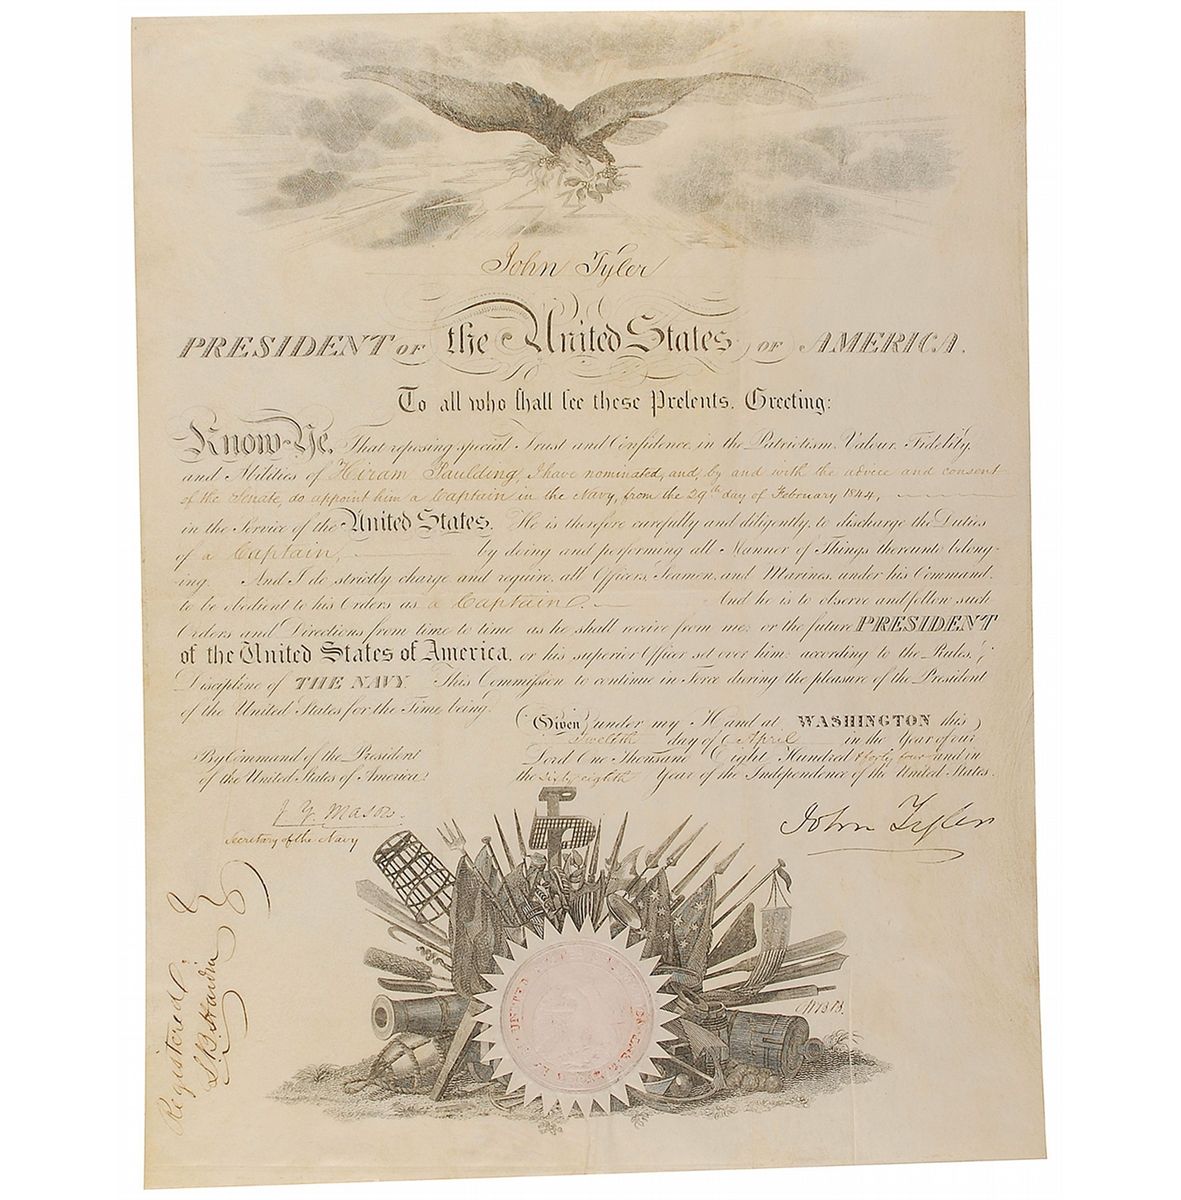 John Tyler
PRESIDENT OF the United States OF AMERICA.
To all who shall see these Presents, Greeting:
Know Ye, That reposing special Trust and Confidence in the Patriotism, Valour, Fidelity,
and Abilities of Hiram Paulding, I have nominated, and, by and with the advice and consent
of the Senate, do appoint him a Captain in the Navy, from the 29th day of February 1844,
in the Service of the United States. He is therefore carefully and diligently to discharge the Duties
of a Captain, by doing and performing all Manner of Things thereunto belong-
ing. And I do strictly charge and require all Officers, Seamen, and Marines, under his Command,
to be obedient to his Orders as a Captain. And he is to observe and follow such
Orders and Directions from time to time as he shall receive from me, or the future PRESIDENT
of the United States of America, or his superior Officer set over him, according to the Rules,
Discipline of THE NAVY. This Commission to continue in Force during the pleasure of the President
of the United States for the Time being.
Given under my Hand at WASHINGTON this
twelfth day of April in the Year of our
Lord One Thousand Eight Hundred & forty four and in
the sixty eighth Year of the Independence of the United States.
By Command of the President
of the United States of America.
J. Y. Mason
Secretary of the Navy
John Tyler
Registered